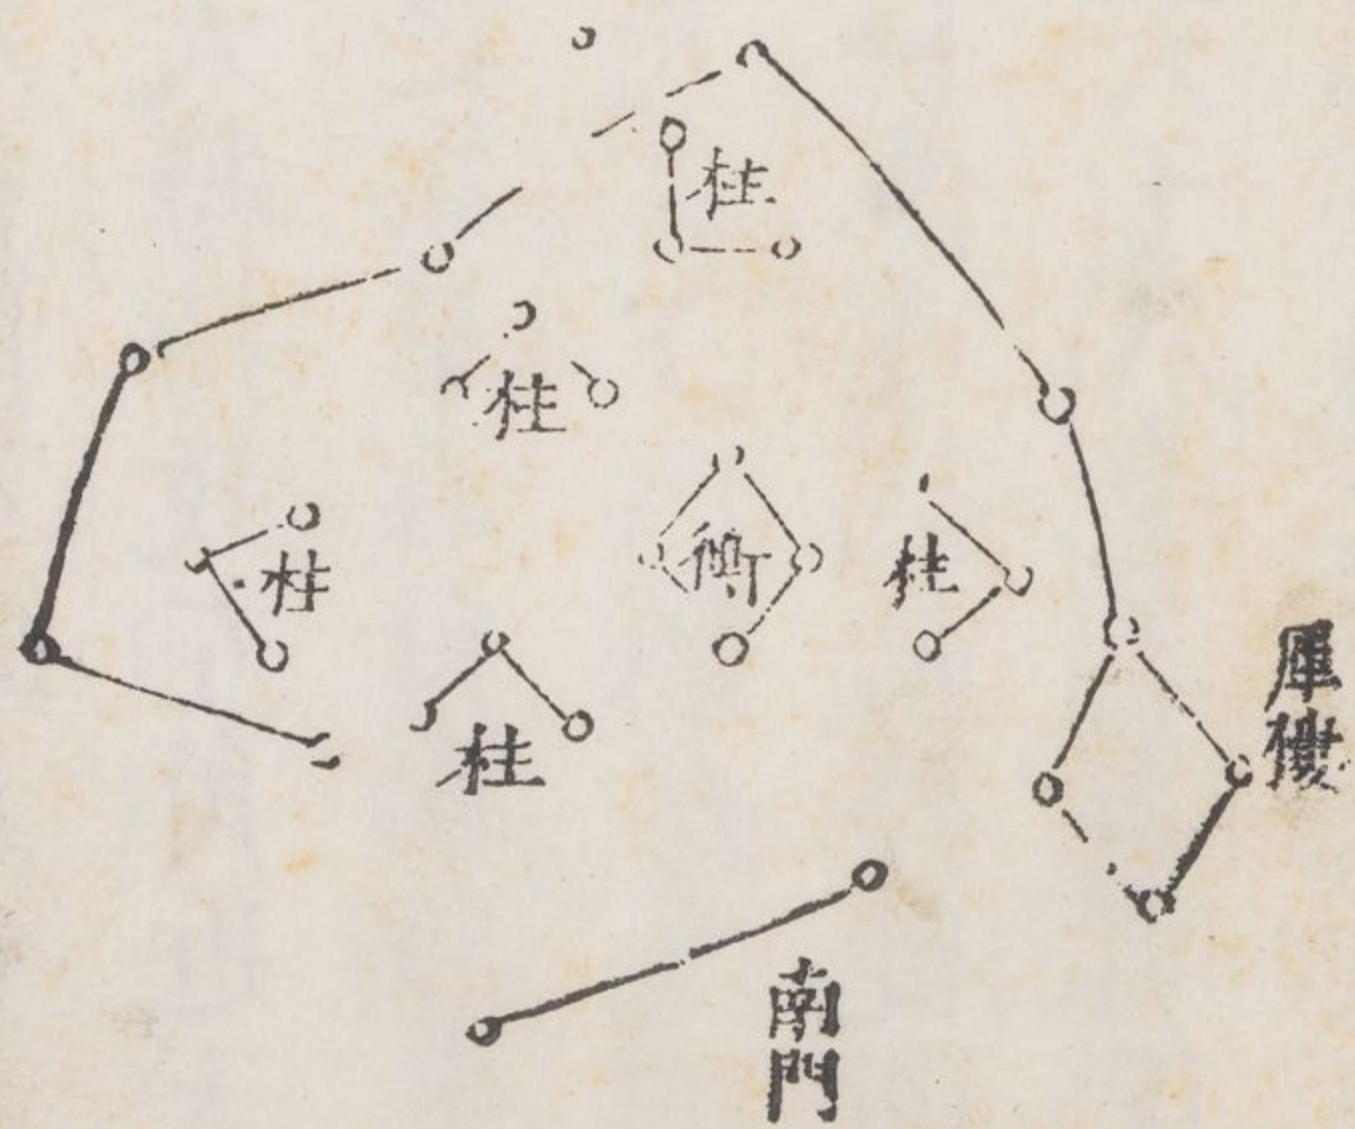 柱
柱
柱
衡
柱
柱
庫樓
南門